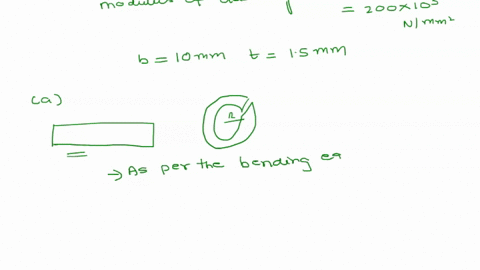 modulus of
= 200×10³
N/mm²
b = 10mm t = 1.5mm
(a)
R
→ As per the bending eq